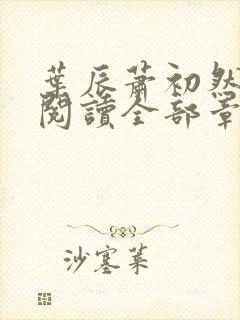 葉辰蕭初然
閱讀全部章
沙塞葉